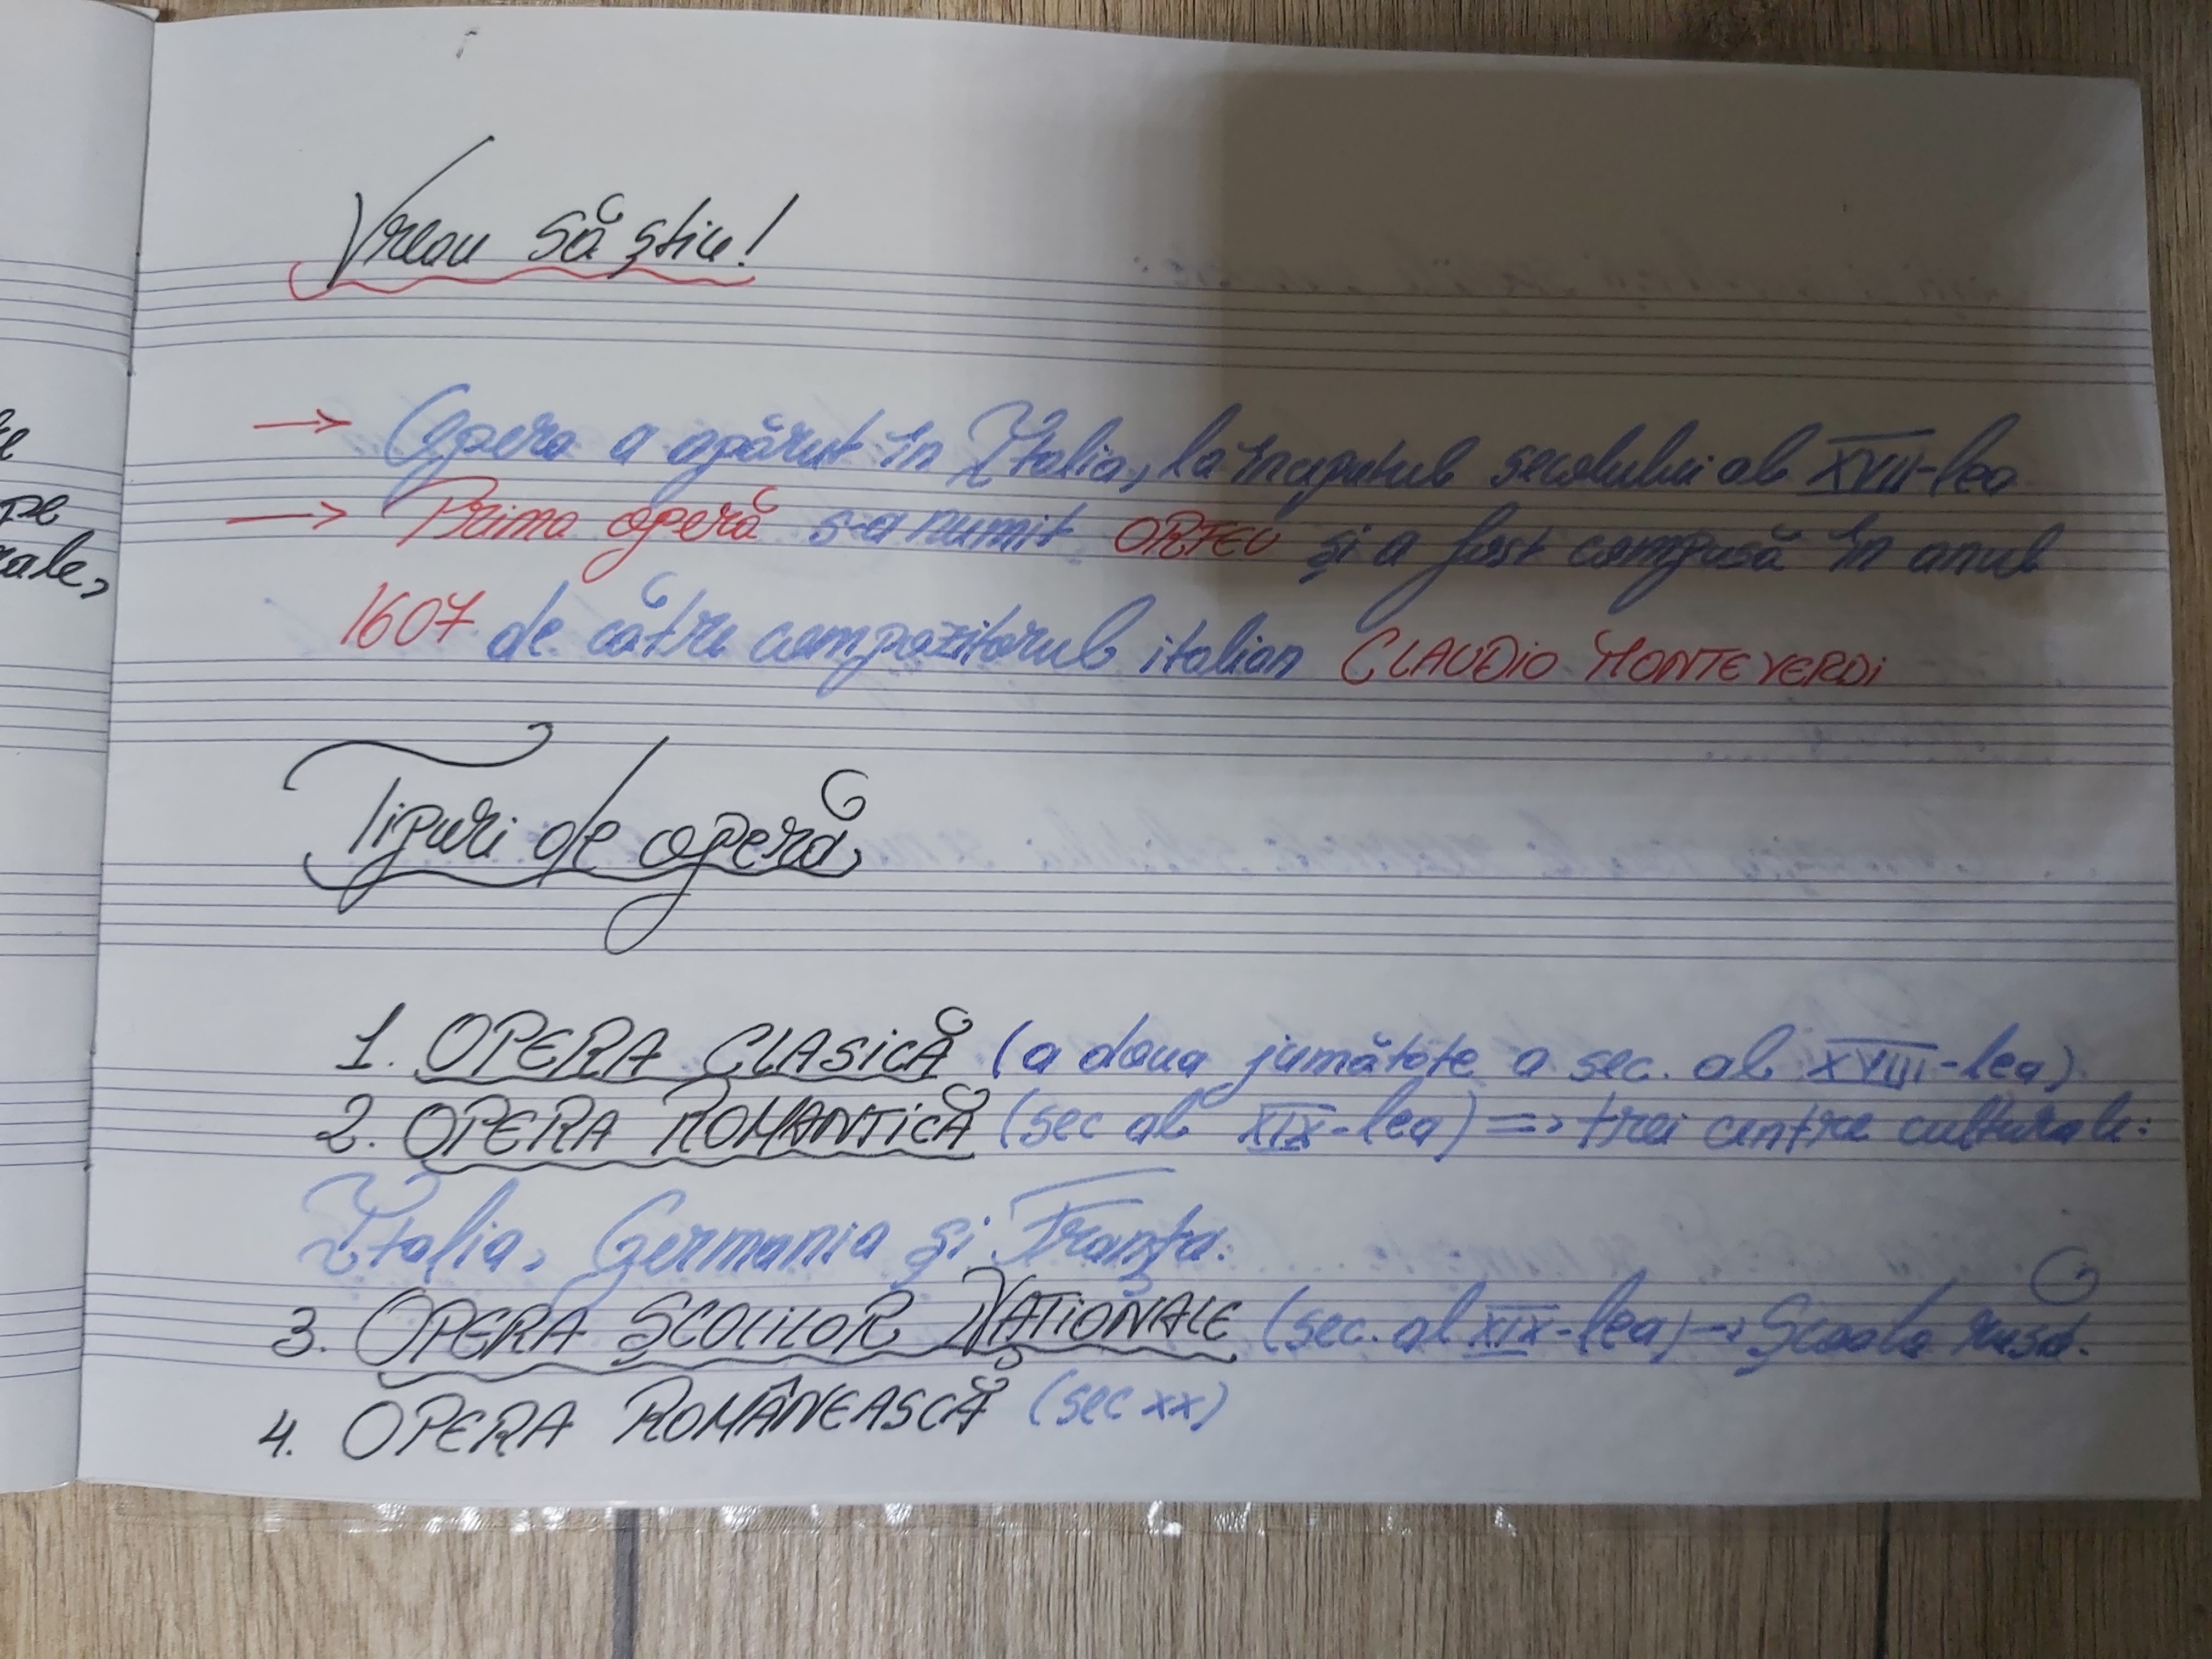 Vreau să știu!
→ Opera a apărut în Italia, la începutul secolului al XVII-lea
→ Prima operă s-a numit ORFEU și a fost compusă în anul
1607 de către compozitorul italian CLAUDIO MONTEVERDI
Tipuri de operă
1. OPERA CLASICĂ (a doua jumătate a sec. al XVIII-lea)
2. OPERA ROMANTICĂ (sec al XIX-lea) => trei centre culturale:
Italia, Germania și Franța.
3. OPERA ȘCOLILOR NAȚIONALE (sec. al XIX-lea) → Școala rusă.
4. OPERA ROMÂNEASCĂ (sec XX)
pe